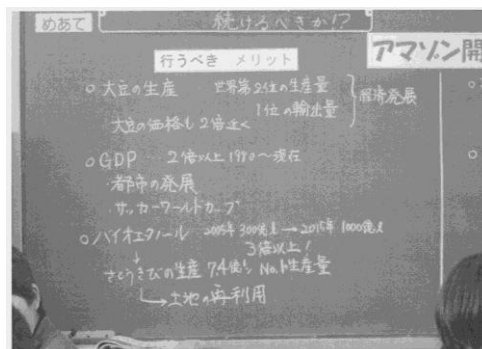 めあて
続けるべきか!?
行うべき メリット
アマゾン開
○大豆の生産 世界第2位の生産量
1位の輸出量
経済発展
大豆の価格も2倍近く
○GDP 2倍以上 1990~現在
・都市の発展
・サッカーワールドカップ
○バイオエタノール 2005年 300億ℓ → 2015年 1000億ℓ
3倍以上!
↓
さとうきびの生産 7.4億t No.1生産量
→土地の再利用